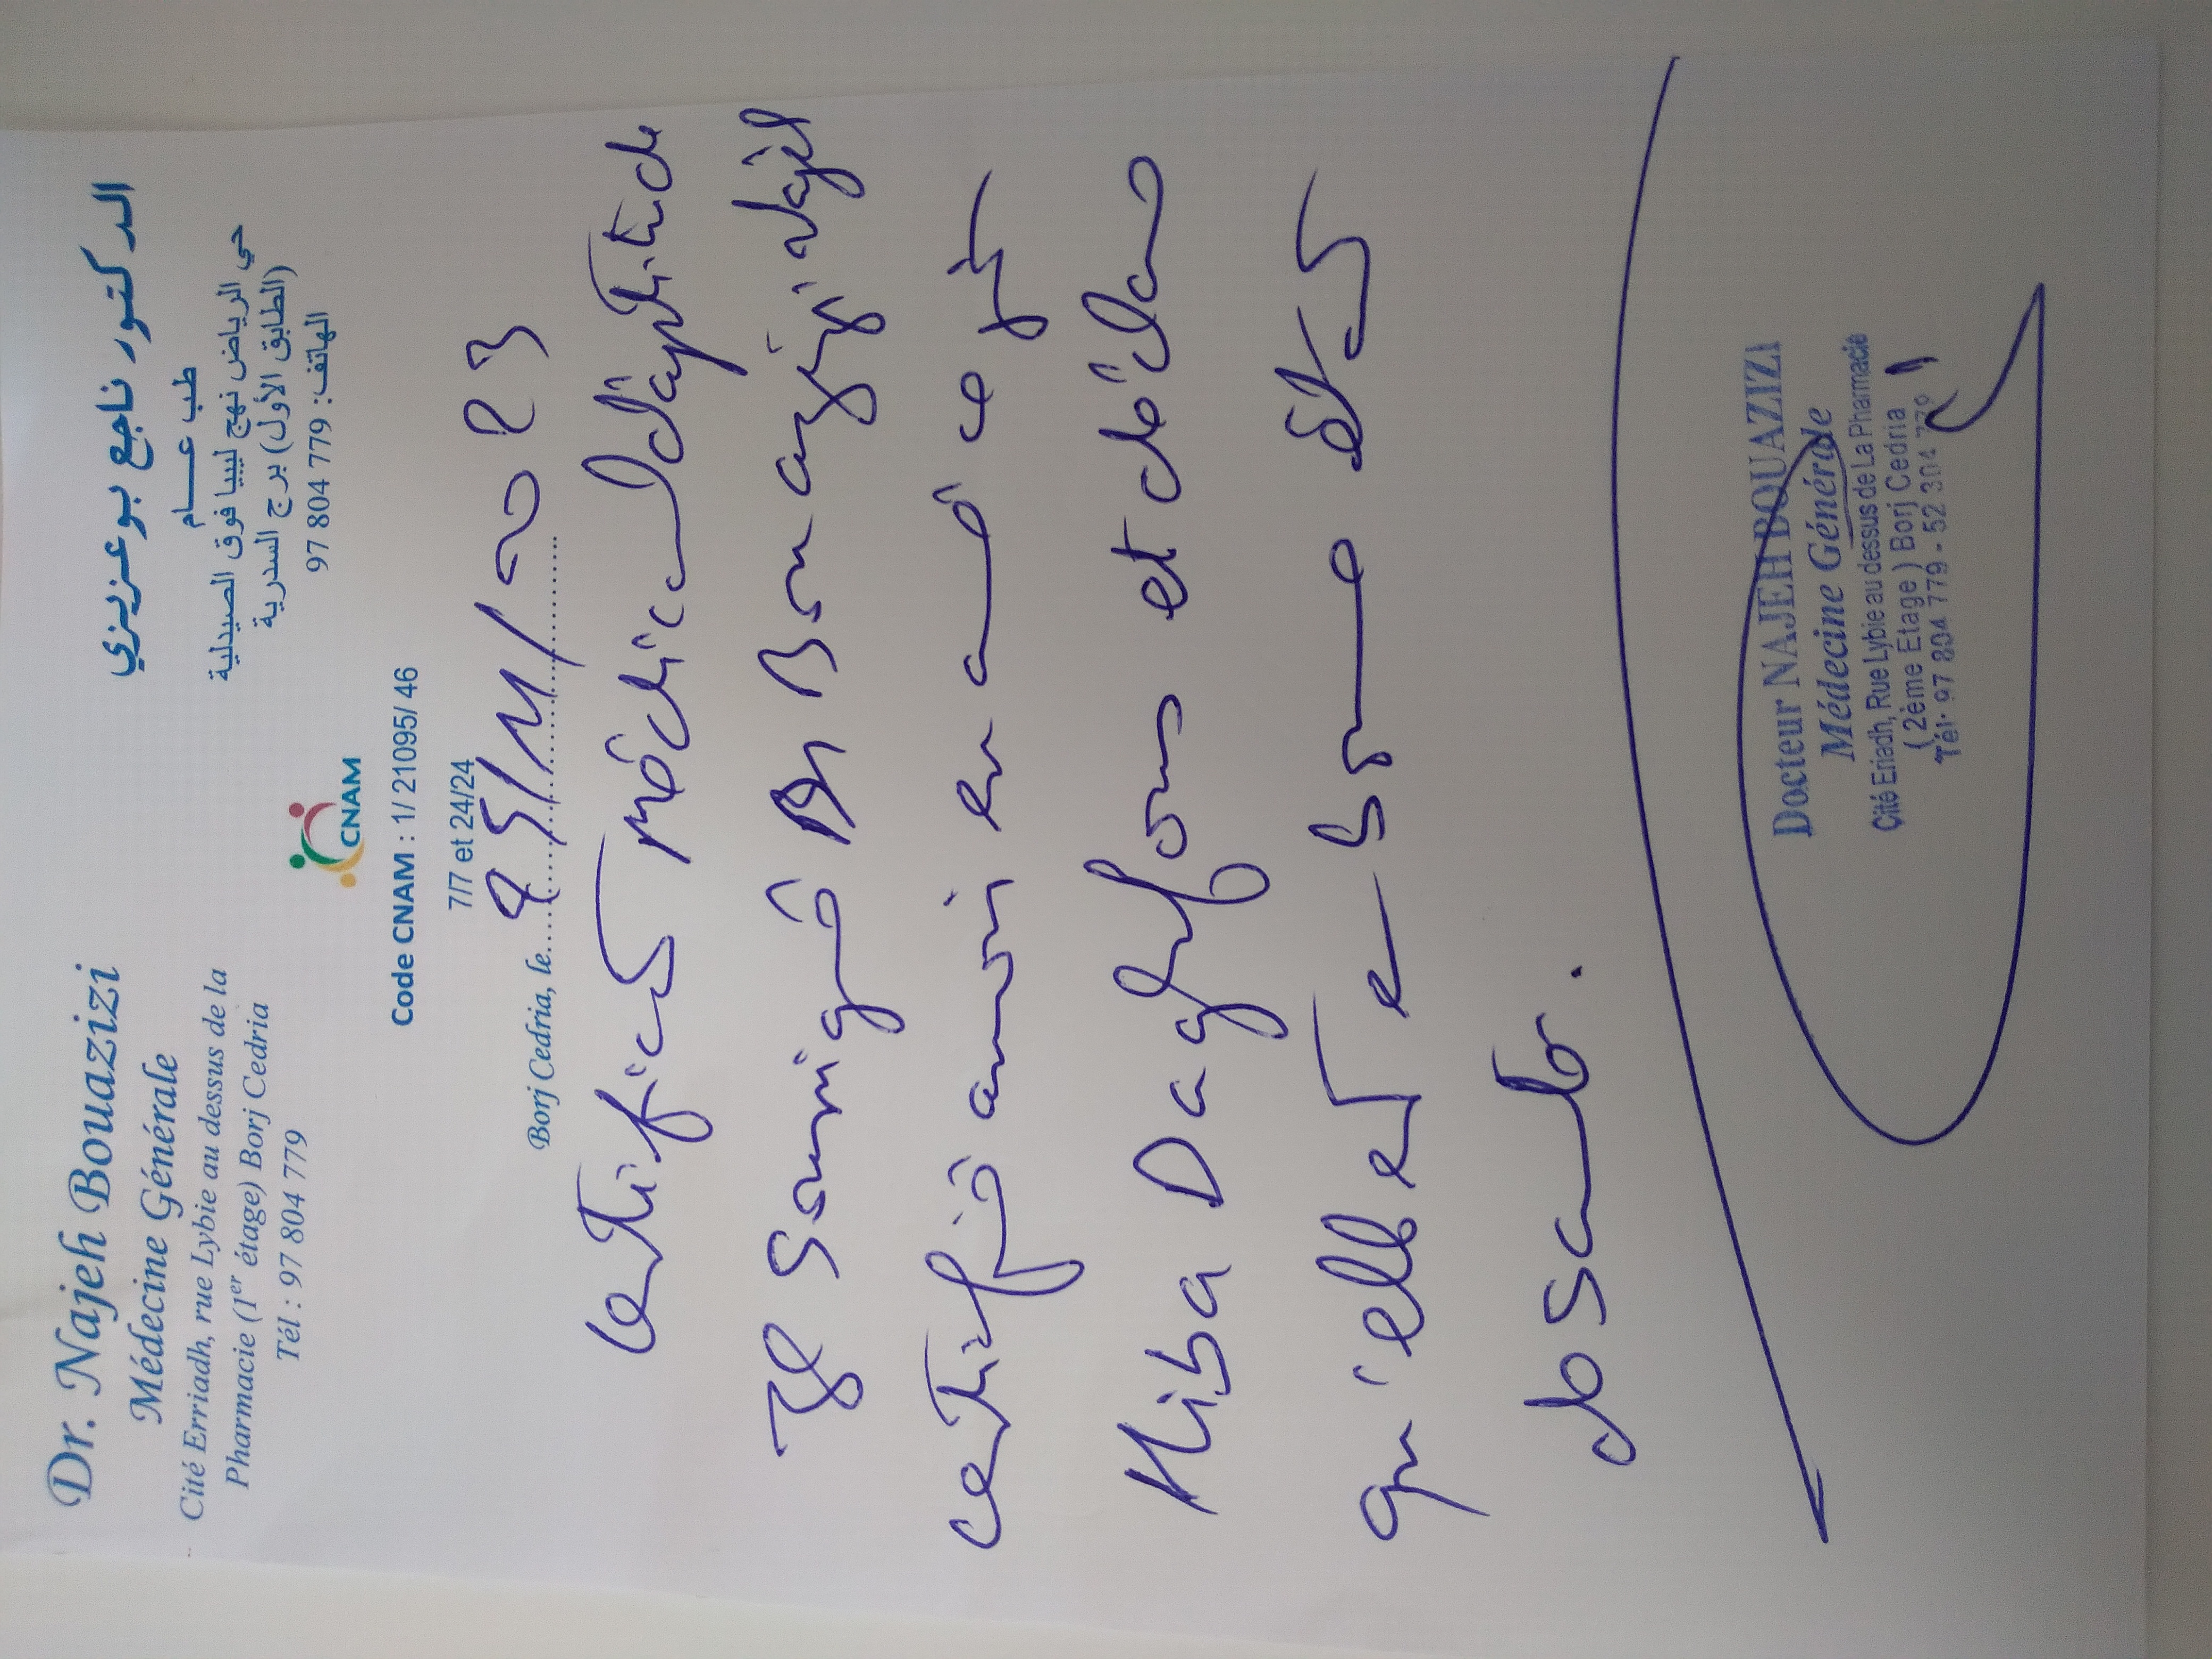 Dr. Najeh Bouazizi
Médecine Générale
Cité Erriadh, rue Lybie au dessus de la
Pharmacie (1er étage) Borj Cedria
Tél : 97 804 779
الدكتور ناجع بوعزيزي
طب عـــــام
حي الرياض نهج ليبيا فوق الصيدلية
(الطابق الأول) برج السدرية
الهاتف: 97 804 779
CNAM
Code CNAM : 1/ 21095/ 46
7/7 et 24/24
Borj Cedria, le 25/11/2023
Certificat Médical d'aptitude
Je Soussigné Dr Bouazizi Najeh
certifie avoir examiné ce jr
Hiba Daghfous et déclare
qu'elle est en bonne état
de santé.
Docteur NAJEH BOUAZIZI
Médecine Générale
Cité Eriadh, Rue Lybie au dessus de La Pharmacie
( 2ème Etage ) Borj Cedria
Tél: 97 804 779 - 52 304 779